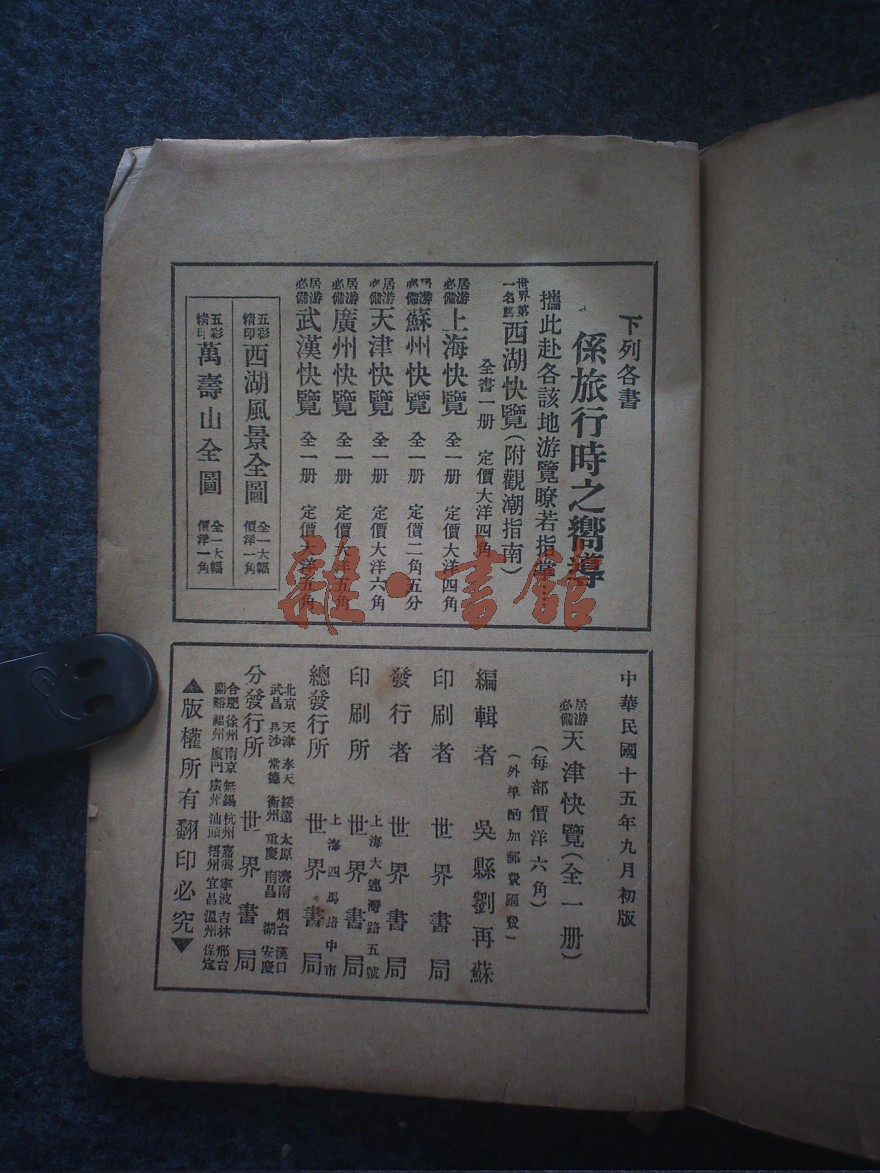 下列各書
係旅行時之嚮導
攜此赴各該地游覽瞭若指掌
世界第一名勝西湖快覽(附觀潮指南)
全書一册 定價大洋四角
居游必備上海快覽 全一册 定價大洋四角
居游必備蘇州快覽 全一册 定價二角五分
居游必備天津快覽 全一册 定價大洋六角
居游必備廣州快覽 全一册 定價大洋五角
居游必備武漢快覽 全一册 定價大洋五角
五彩精印西湖風景全圖 全一大幅 價洋一角
五彩精印萬壽山全圖 全一大幅 價洋一角
雜·書館
中華民國十五年九月初版
居游必備天津快覽(全一册)
(每部價洋六角)
(外埠酌加郵費匯費)
編輯者 吳縣劉再蘇
印刷者 世界書局
發行者 世界書局
印刷所 上海大連灣路五號 世界書局
總發行所 上海四馬路中市 世界書局
北京 天津 奉天 綏遠 太原 濟南 烟台 漢口
武昌 長沙 常德 衡州 重慶 南昌 安慶
分發行所 世界書局
合肥 徐州 南京 無錫 杭州 嘉興 寧波 吉林 邢台
蘭谿 福州 廈門 廣州 汕頭 梧州 宜昌 溫州 保定
▲版權所有翻印必究▼